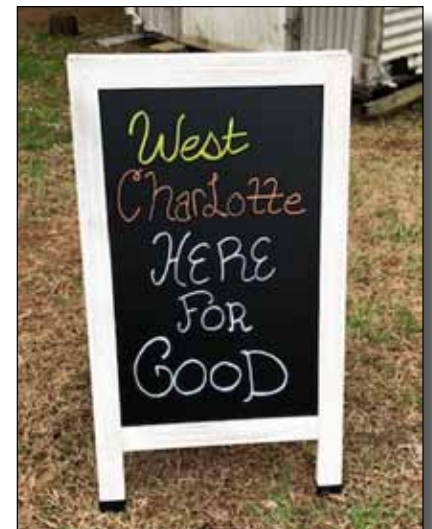 West
CharLotte
HERE
FOR
GOOD